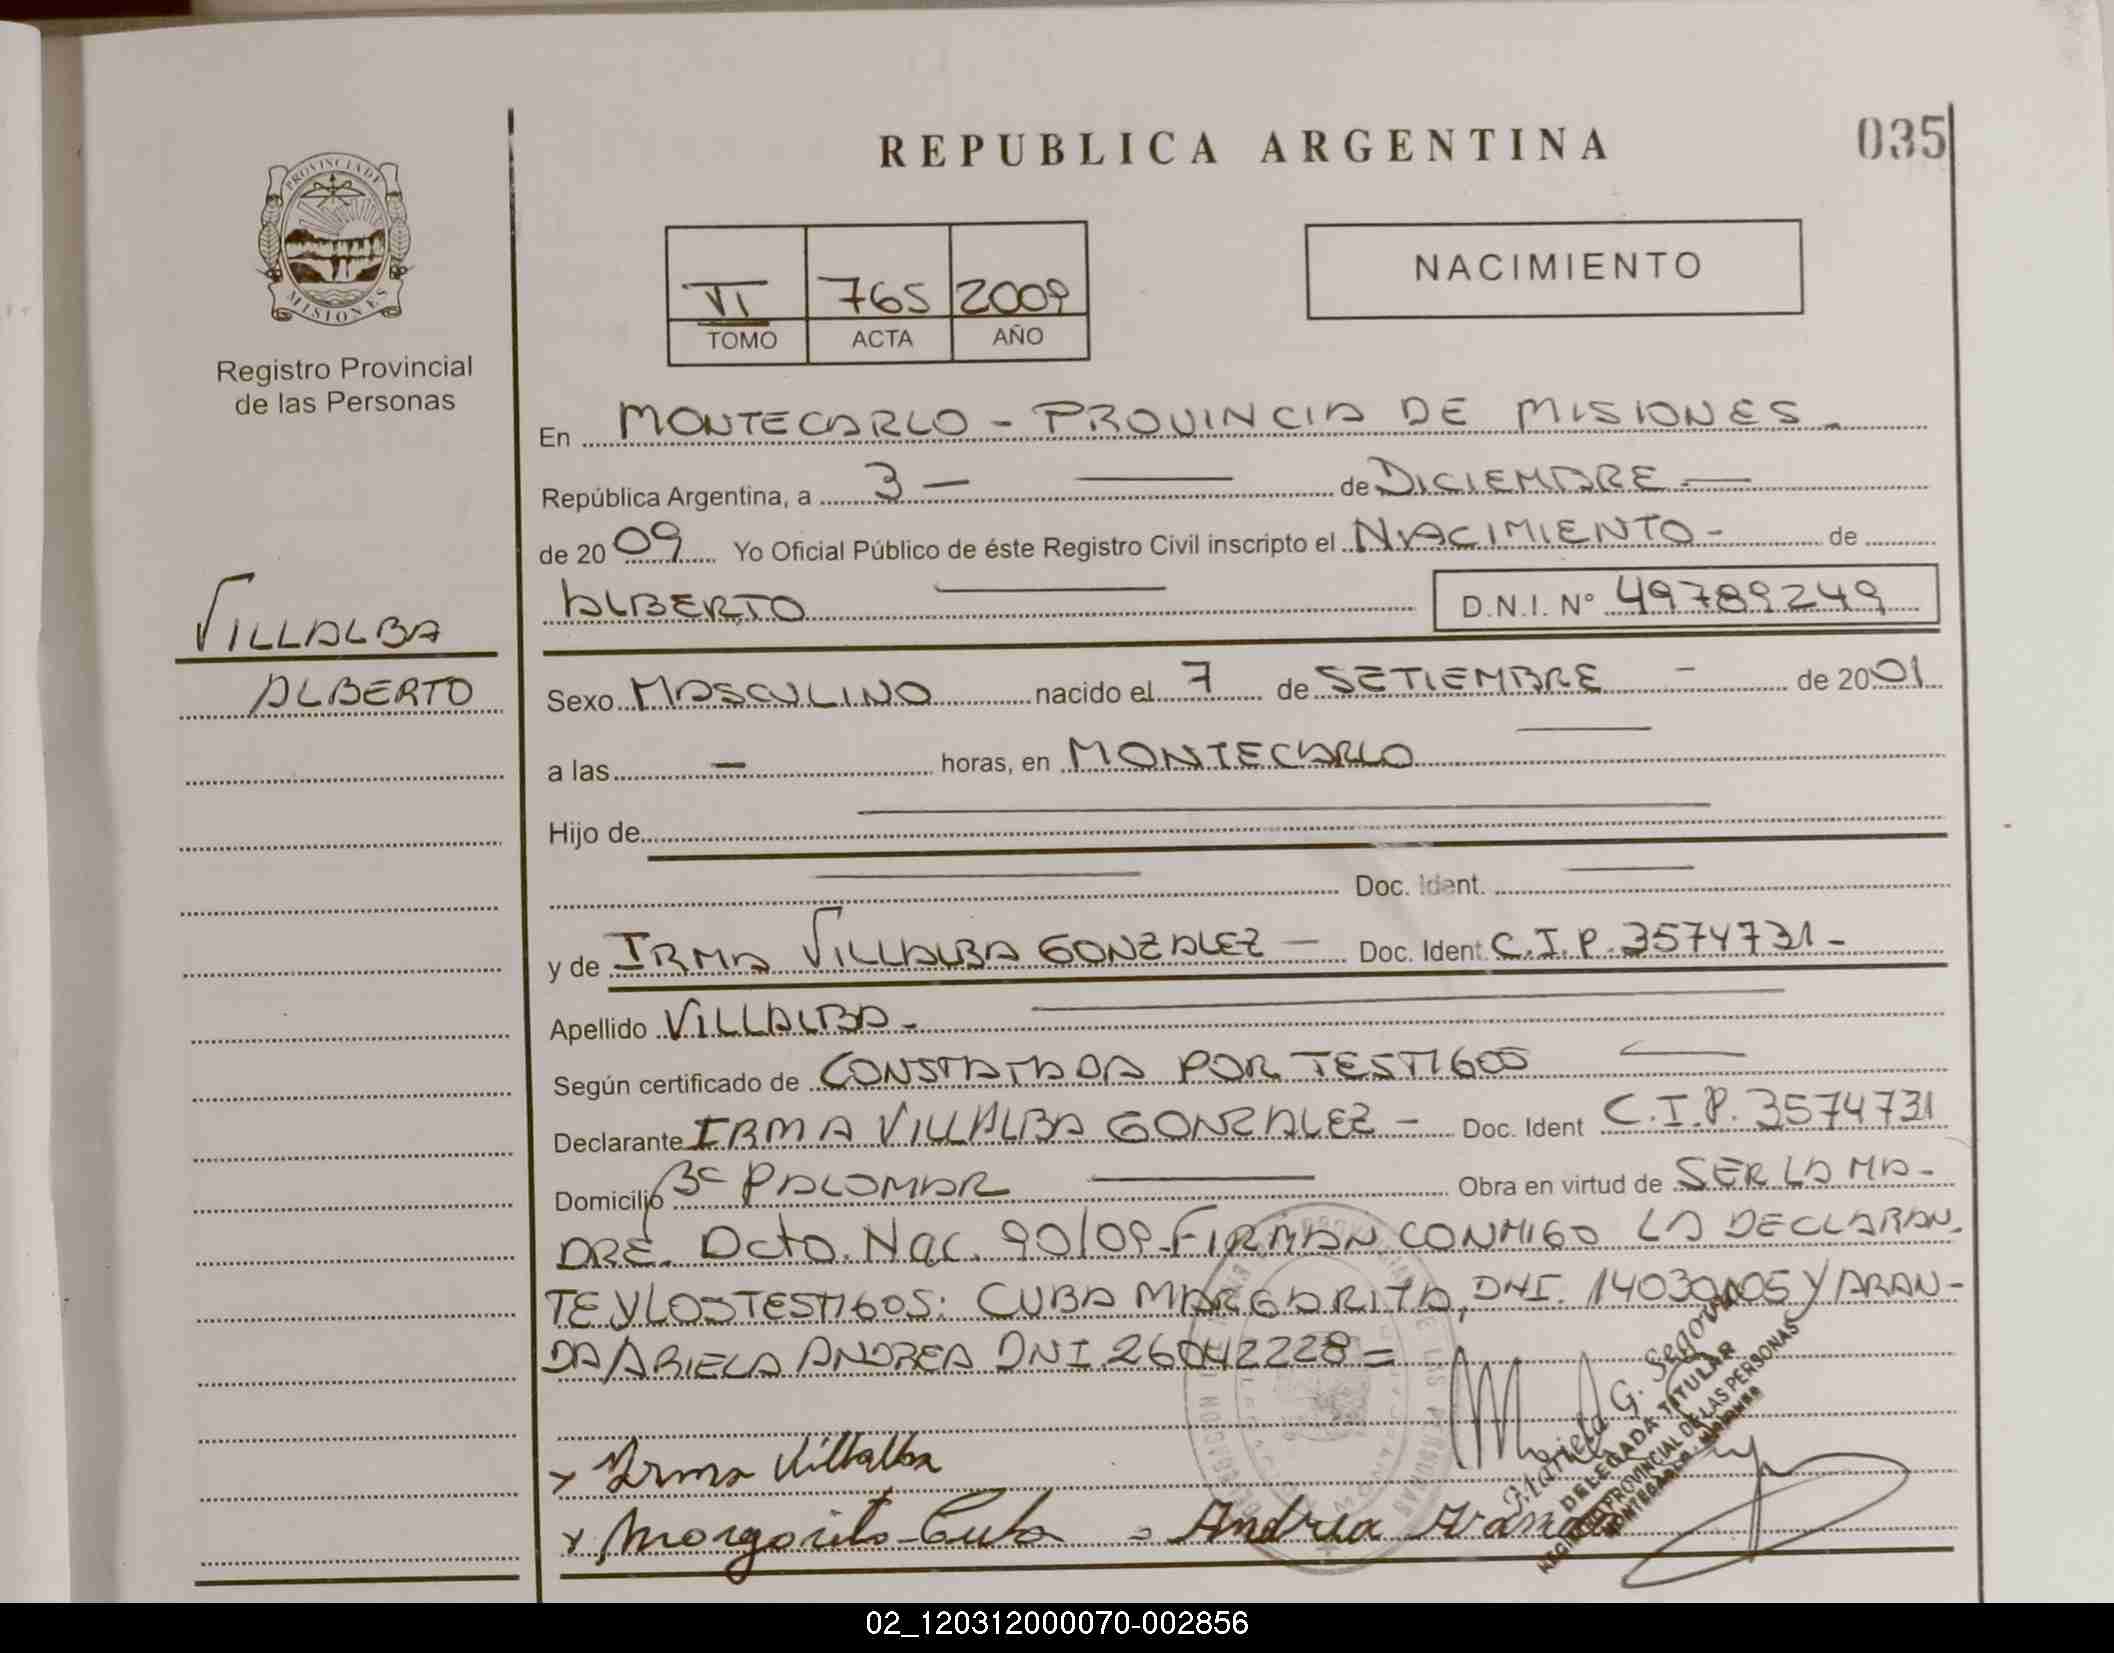 REPUBLICA ARGENTINA
035
PROVINCIA DE
MISIONES
Registro Provincial
de las Personas
VI 765 2009
TOMO ACTA AÑO
NACIMIENTO
En MONTECARLO - PROVINCIA DE MISIONES
República Argentina, a 3 - de DICIEMBRE
de 2009 Yo Oficial Público de éste Registro Civil inscripto el NACIMIENTO - de
ALBERTO D.N.I. Nº 49789249
VILLALBA
ALBERTO
Sexo MASCULINO nacido el 7 de SETIEMBRE - de 2001
a las - horas, en MONTECARLO
Hijo de
Doc. Ident.
y de IRMA VILLALBA GONZALEZ - Doc. Ident C.I.P. 3574731-
Apellido VILLALBA-
Según certificado de CONSTATADA POR TESTIGOS
Declarante IRMA VILLALBA GONZALEZ - Doc. Ident C.I.P. 3574731
Domicilio Bº PALOMAR Obra en virtud de SER LA MA-
DRE. Dcto. Nac. 90/09- FIRMAN CONMIGO LA DECLARAN-
TE Y LOS TESTIGOS: CUBA MARGARITA, DNI. 14030105 Y ARAN-
DA ARIELA ANDREA DNI 26042228=
Irma Villalba
Margarita Cuba - Andrea Aranda
Mariela G. Segovia
DELEGADA TITULAR
REGISTRO PROVINCIAL DE LAS PERSONAS
MONTECARLO - Misiones
02_120312000070-002856